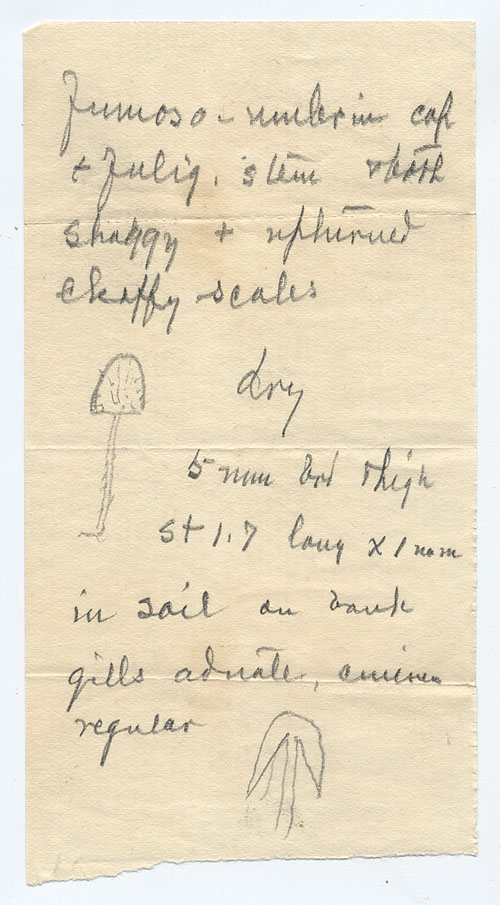 Fumoso-umbrin cap
+ Fulig. stem + both
shaggy + upturned
chaffy scales
dry
5 mm brd + high
st 1.7 long x 1 mm
in soil on bank
gills adnate,
regular